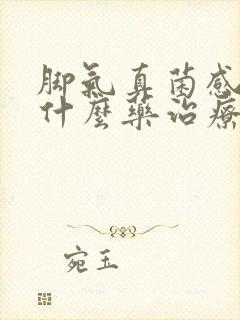 脚氣真菌感
什麼藥治療
宛玉